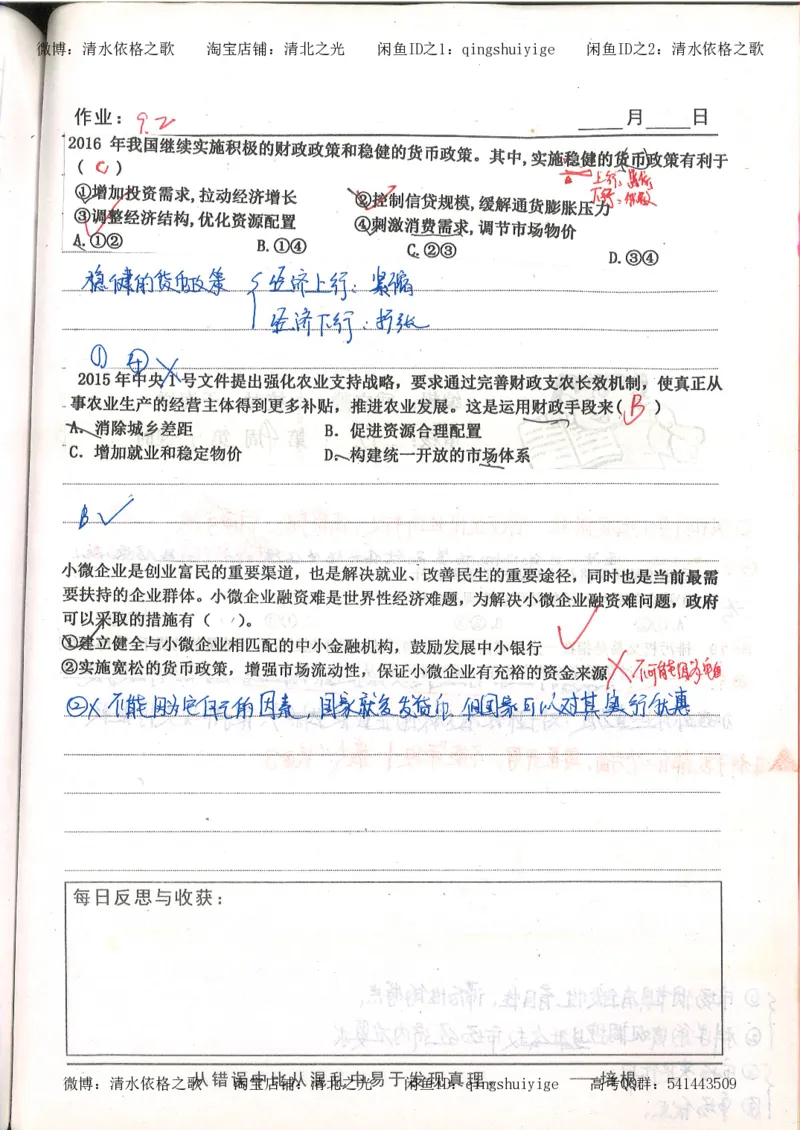 微博：清水依格之歌 淘宝店铺：清北之光 闲鱼ID之1：qingshuiyige 闲鱼ID之2：清水依格之歌
作业：9.2 ____月____日
2016 年我国继续实施积极的财政政策和稳健的货币政策。其中,实施稳健的货币政策有利于
( C )
上行：紧缩
下行：扩张
①增加投资需求,拉动经济增长 ②控制信贷规模,缓解通货膨胀压力
③调整经济结构,优化资源配置 ④刺激消费需求,调节市场物价
A.①② B.①④ C.②③ D.③④
稳健的货币政策 { 经济上行：紧缩
经济下行：扩张
① ④ ×
2015年中央1号文件提出强化农业支持战略，要求通过完善财政支农长效机制，使真正从
事农业生产的经营主体得到更多补贴，推进农业发展。这是运用财政手段来( B )
A．消除城乡差距 B．促进资源合理配置
C．增加就业和稳定物价 D．构建统一开放的市场体系
B √
小微企业是创业富民的重要渠道，也是解决就业、改善民生的重要途径，同时也是当前最需
要扶持的企业群体。小微企业融资难是世界性经济难题，为解决小微企业融资难问题，政府
可以采取的措施有（ ）。
①建立健全与小微企业相匹配的中小金融机构，鼓励发展中小银行
②实施宽松的货币政策，增强市场流动性，保证小微企业有充裕的资金来源 × 不可能因为它自
②× 不能因为它自己的因素，国家就多发货币，但国家可以对其实行优惠
每日反思与收获：
从错误中比从混乱中易于发现真理 ——培根
微博：清水依格之歌 淘宝店铺：清北之光 闲鱼ID：qingshuiyige 高考QQ群：541443509